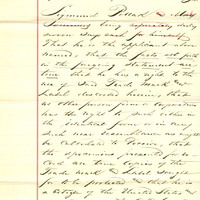 Sigmund Pollak & Max
being separately duly
sworn says each for himself
That he is the applicant above
named, that the facts set forth
in the foregoing statement are
true that he has a right to the
use of Said Trade Mark &
Label described herein, that
no other person firm or Corporation
has the right to such either in
the identical form or in any
such near resemblance as might
be Calculated to Deceive, that
the specimens presented for
record are true copies of the
Trade Mark & Label Sought
to be protected & that he is
a Citizen of the United States &